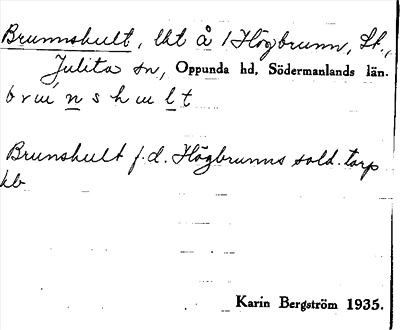 Brunnshult, lht å 1 Högbrunn, St.,
Julita sn, Oppunda hd, Södermanlands län.
Brunshult f.d. Högbrunns sold. torp
kb
Karin Bergström 1935.